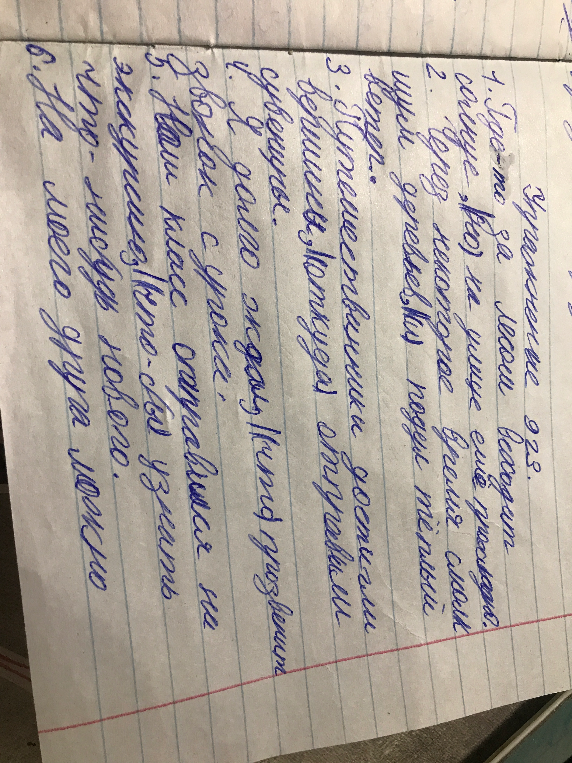 Упражнение 923.
1. Где-то за лесом восходит
солнце, |(но) на улице ещё прохладно.
2. Через некоторое время смолк
шум деревьев, |(и) подул тёплый
ветер.
3. Путешественники достигли
вершины, |(откуда) отправили
сувениры.
4. Я долго ждал, |(что) прозвенит
звонок с урока.
5. Наш класс отправился на
экскурсию, |(что-бы) узнать
что-нибудь нового.
6. На моего друга можно